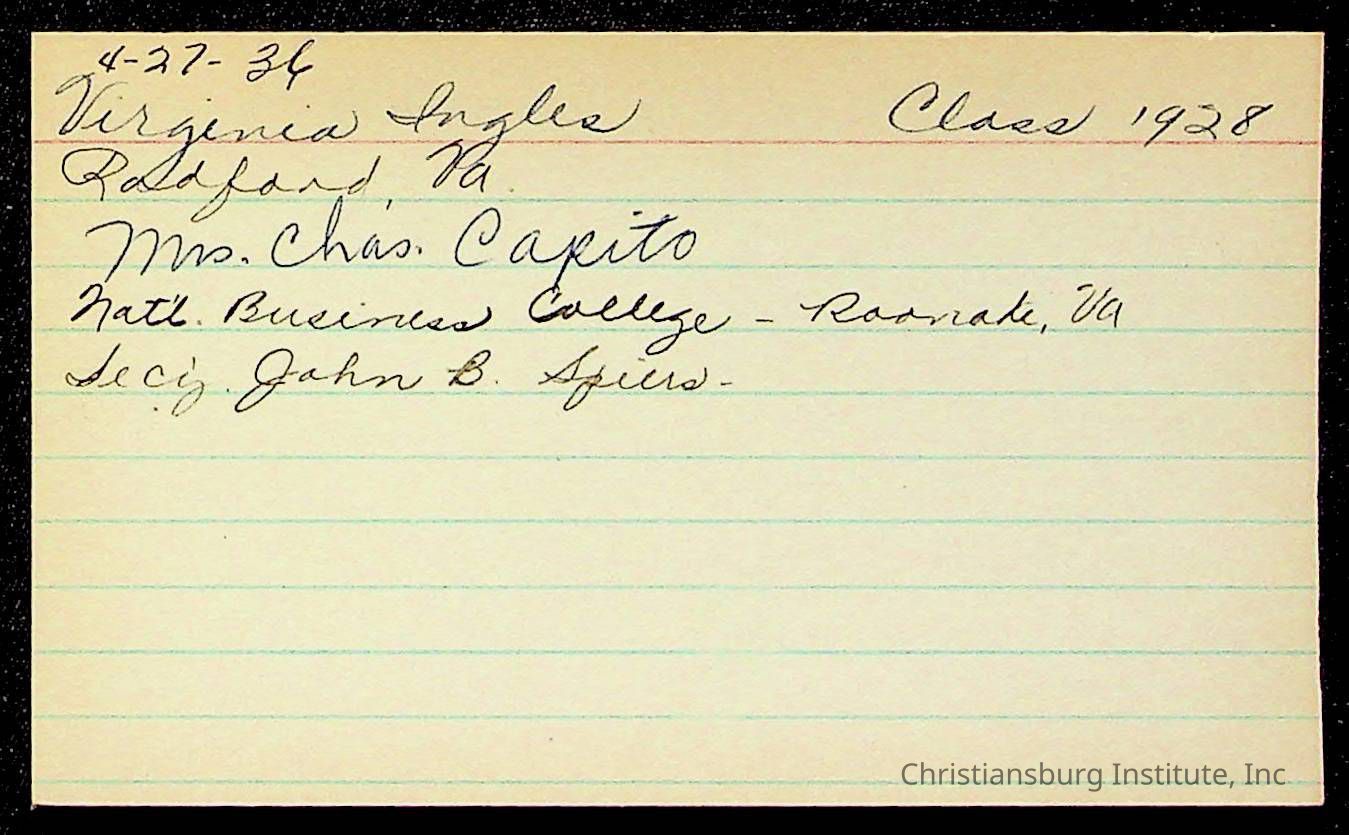 4-27-36
Virginia Ingles Class 1928
Radford, Va.
Mrs. Chas. Capito
Nat'l. Business College - Roanoke, Va
Sec'y. John B. Spiers-
Christiansburg Institute, Inc